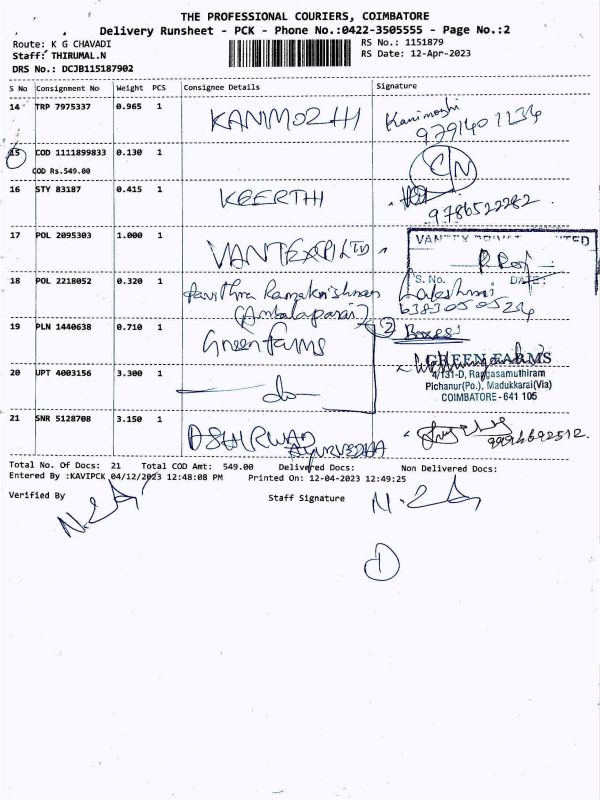 THE PROFESSIONAL COURIERS, COIMBATORE
Delivery Runsheet - PCK - Phone No.:0422-3505555 - Page No.:2
Route: K G CHAVADI
Staff: THIRUMAL.N
RS No.: 1151879
RS Date: 12-Apr-2023
DRS No.: DCJB115187902
S No Consignment No Weight PCS Consignee Details Signature
14 TRP 7975337 0.965 1 KANIMOZHI Kanimozhi
9791401234
15 COD 1111899833 0.130 1
COD Rs.549.00
16 STY 83187 0.415 1 KEERTHI
9786522282
17 POL 2095303 1.000 1 LTD
18 POL 2218052 0.320 1 Pavithra Ramakrishnan
S. No. DATE:
19 PLN 1440638 0.710 1 Green farms
2 Boxes
20 UPT 4003156 3.300 1 do
GREEN FARMS
4/131-D, Rangasamuthiram
Pichanur(Po.), Madukkarai(Via)
COIMBATORE - 641 105
21 SNR 5128708 3.150 1 ASHIRWAD
AYURVEDHA
Total No. Of Docs: 21 Total COD Amt: 549.00 Delivered Docs: Non Delivered Docs:
Entered By :KAVIPCK 04/12/2023 12:48:08 PM Printed On: 12-04-2023 12:49:25
Verified By Staff Signature
1